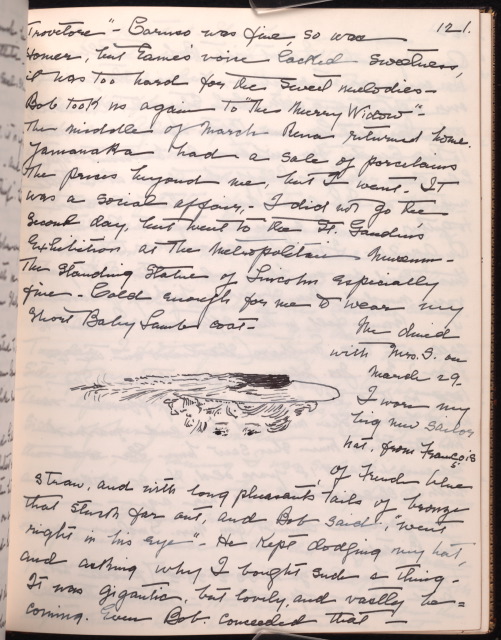 121.
Trovatore" - Caruso was fine, so was
Homer, but Eames' voice lacked sweetness,
it was too hard for the sweet melodies -
Bob took us again to "The Merry Widow" -
The middle of March Rena returned home.
Yamanaka had a sale of porcelains
the prices beyond me, but I went. It
was a social affair, - I did not go the
second day, but went to the St. Gauden's
Exhibition at the Metropolitan Museum -
The Standing Statue of Lincoln especially
fine - Cold enough for me to wear my
short Baby Lamb coat -
We dined
with Mrs. S. on
March 29.
I wore my
big new sailor
hat, from François
of French blue
straw, and with long pheasants tails of bronze
that stuck far out, and Bob said, "went
right in his eye" - He kept dodging my hat,
and asking why I bought such a thing -
It was gigantic, but lovely, and vastly be=
coming. Even Bob conceded that -